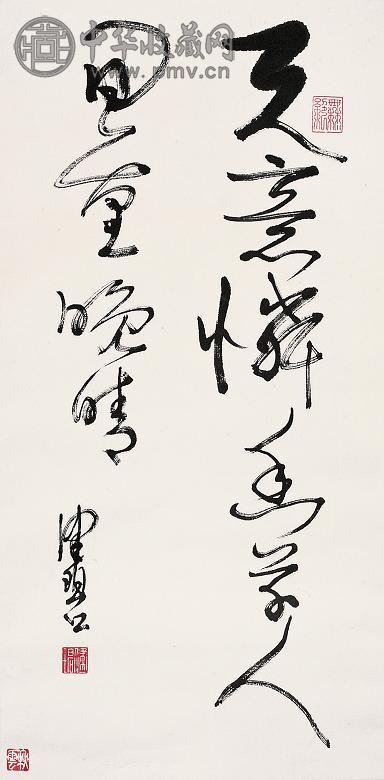 中华收藏网
www.pmv.cn
天意憐幽草人
間重晚晴
健碧